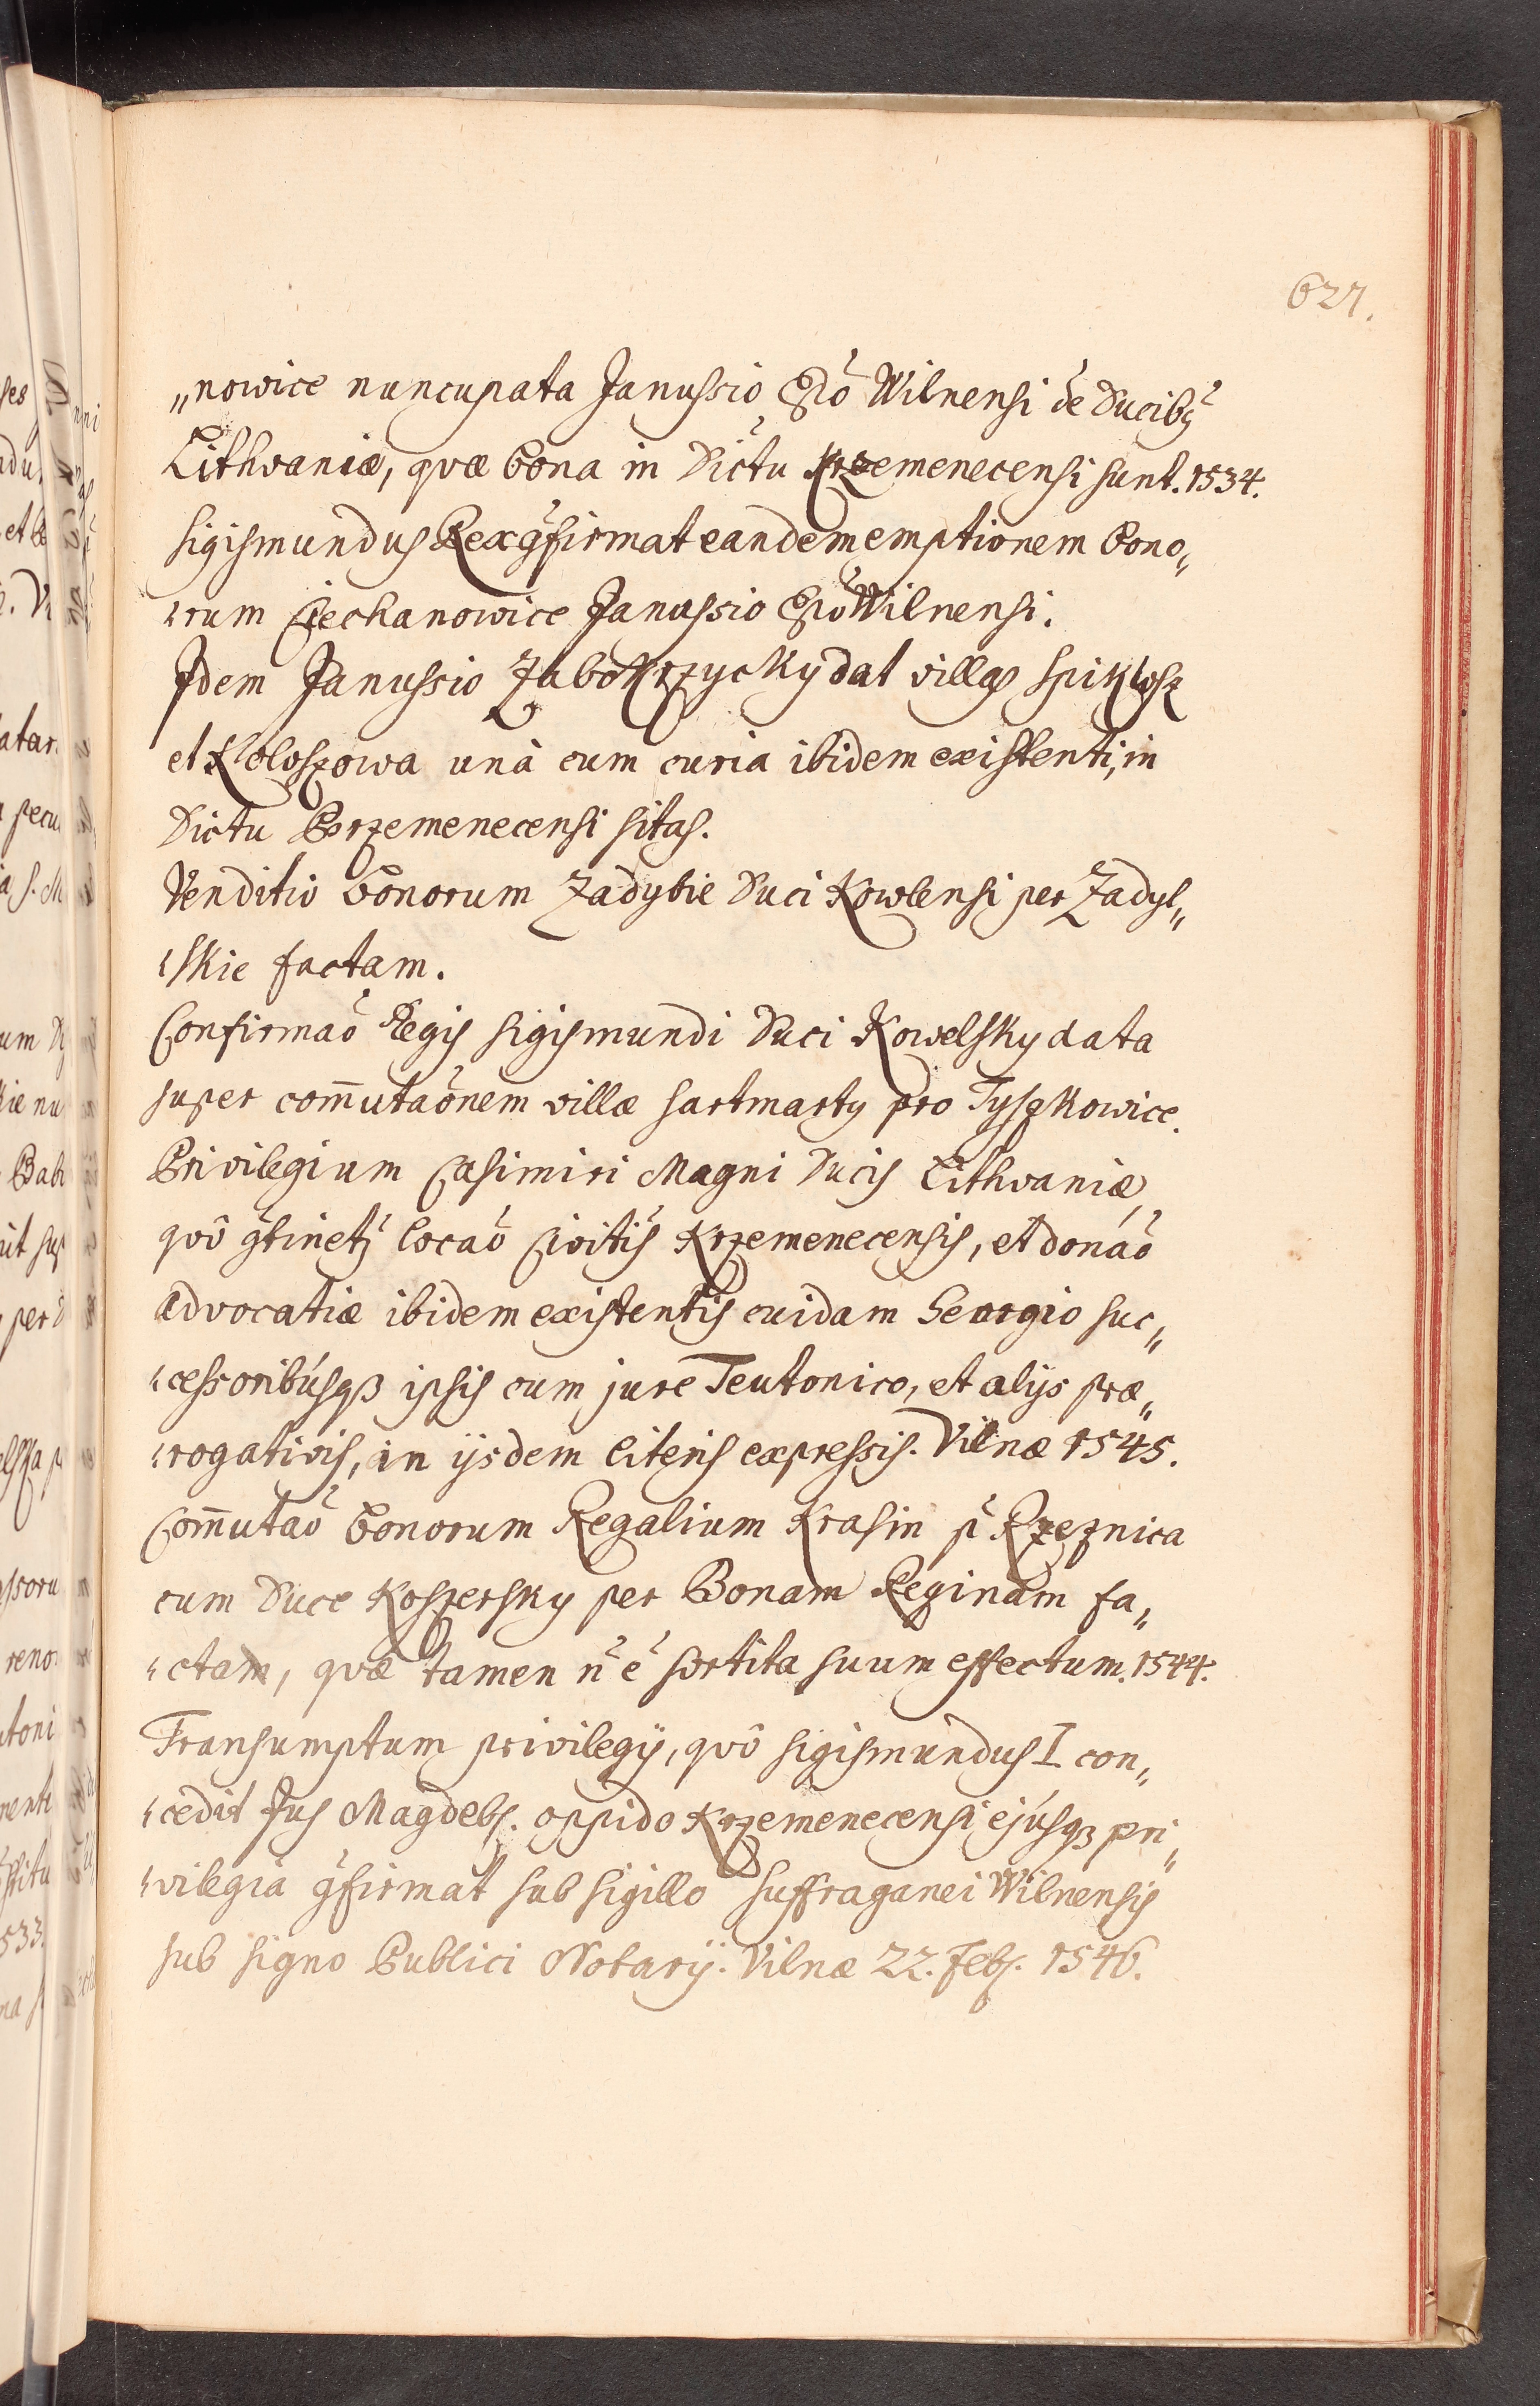 627.
„nowice nuncupata Janussio Epõ Wilnensi de Ducibꝯ
Lithvaniæ, qvæ bona in Dictu Krzemenecensi sunt. 1534.
Sigismundus Rex ꝯfirmat eandem emptionem bono„
„rum Ciechanowice Janussio Epõ Wilnensi.
Idem Janussio Zabokrzycky dat villas Spiklosz
et Koloszowa unà cum curia ibidem existenti, in
Dictu Krzemenecensi sitas.
Venditio bonorum Zadybie Duci Kowlensi per Zadyl„
„skie factam.
Confirmaõ Regis Sigismundi Duci Kowelsky data
super com̅utaõnem villæ Sartmarty pro Tyszkowice.
Privilegium Casimiri Magni Ducis Lithvaniæ,
qvô ꝯtinetꝫ locaõ Civitis Krzemenecensis, et donaõ
advocatiæ ibidem existentis cuidam Georgio suc„
„cessoribúsqꝫ ipsis cum jure Teutonico, et alijs præ„
„rogativis, in ijsdem literis expressis. Vilnæ 1545.
Com̅utaõ bonorum Regalium Krasin p̃ Rzeznica
cum Duce Koszersky per Bonam Reginam fa„
„ctam, qvæ tamen ñ ẽ sortita suum effectum. 1544.
Transumptum privilegij, qvô Sigismundus I con„
„cedit Jus Magdeb. oppido Krzemenecensi ejúsqꝫ pri„
„vilegia ꝯfirmat sub sigillo Suffraganei Wilnensis
sub signo Publici Notarij. Vilnæ 22. Feb. 1546.